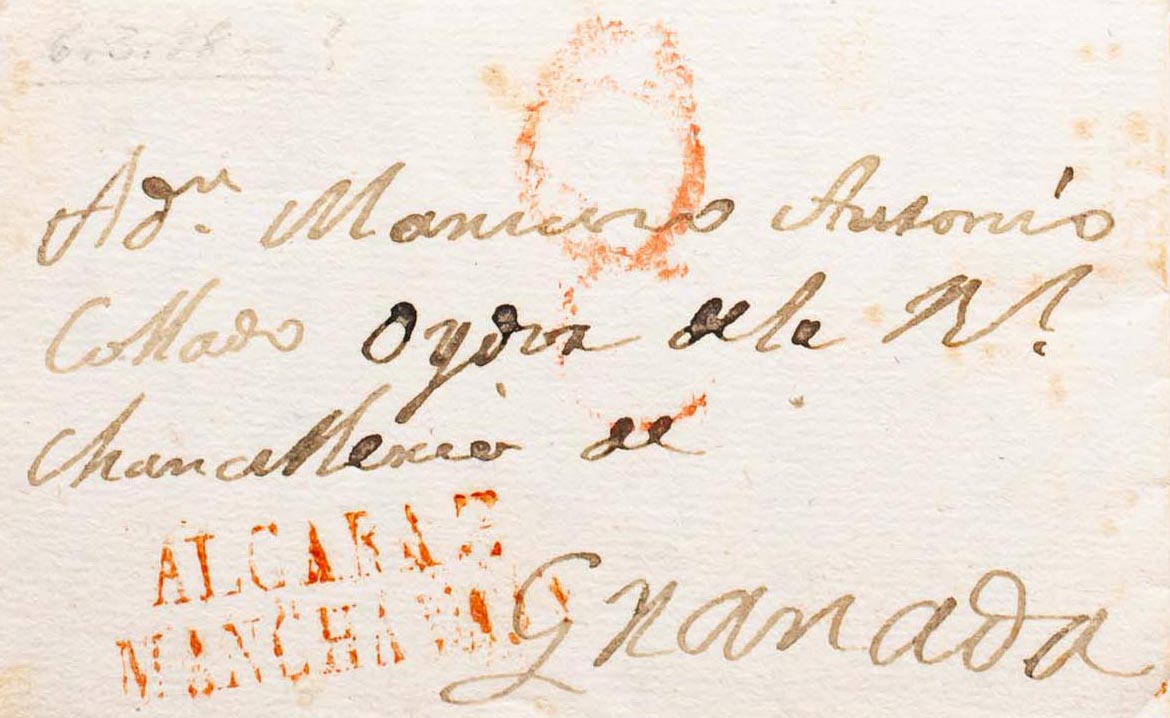 A dn. Mariano Antonio
Collado Oydor de la Rl.
Chancilleria de
Granada
ALCARAZ
MANCHA BAXA